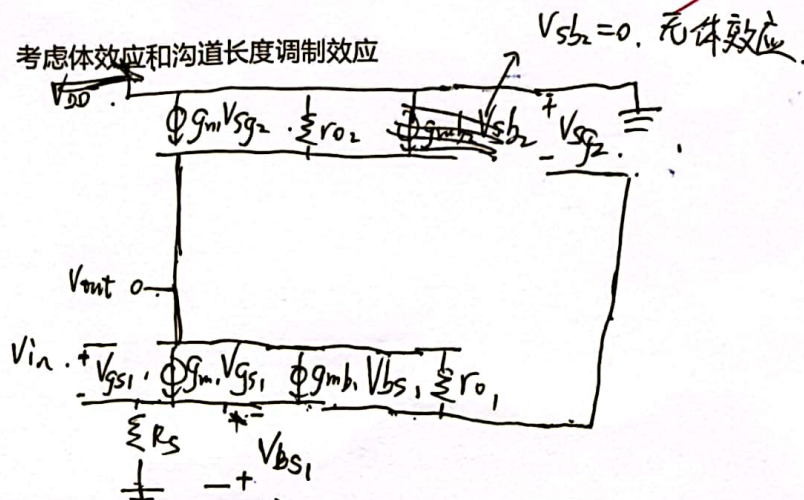 Vsb₂=0. 无体效应.
考虑体效应和沟道长度调制效应
VDD
gm₁Vsg₂ ro₂ + Vsg₂ -
Vout
Vin + Vgs₁ - gm₁Vgs₁ gmb₁Vbs₁ ro₁
Rs
Vbs₁
- +